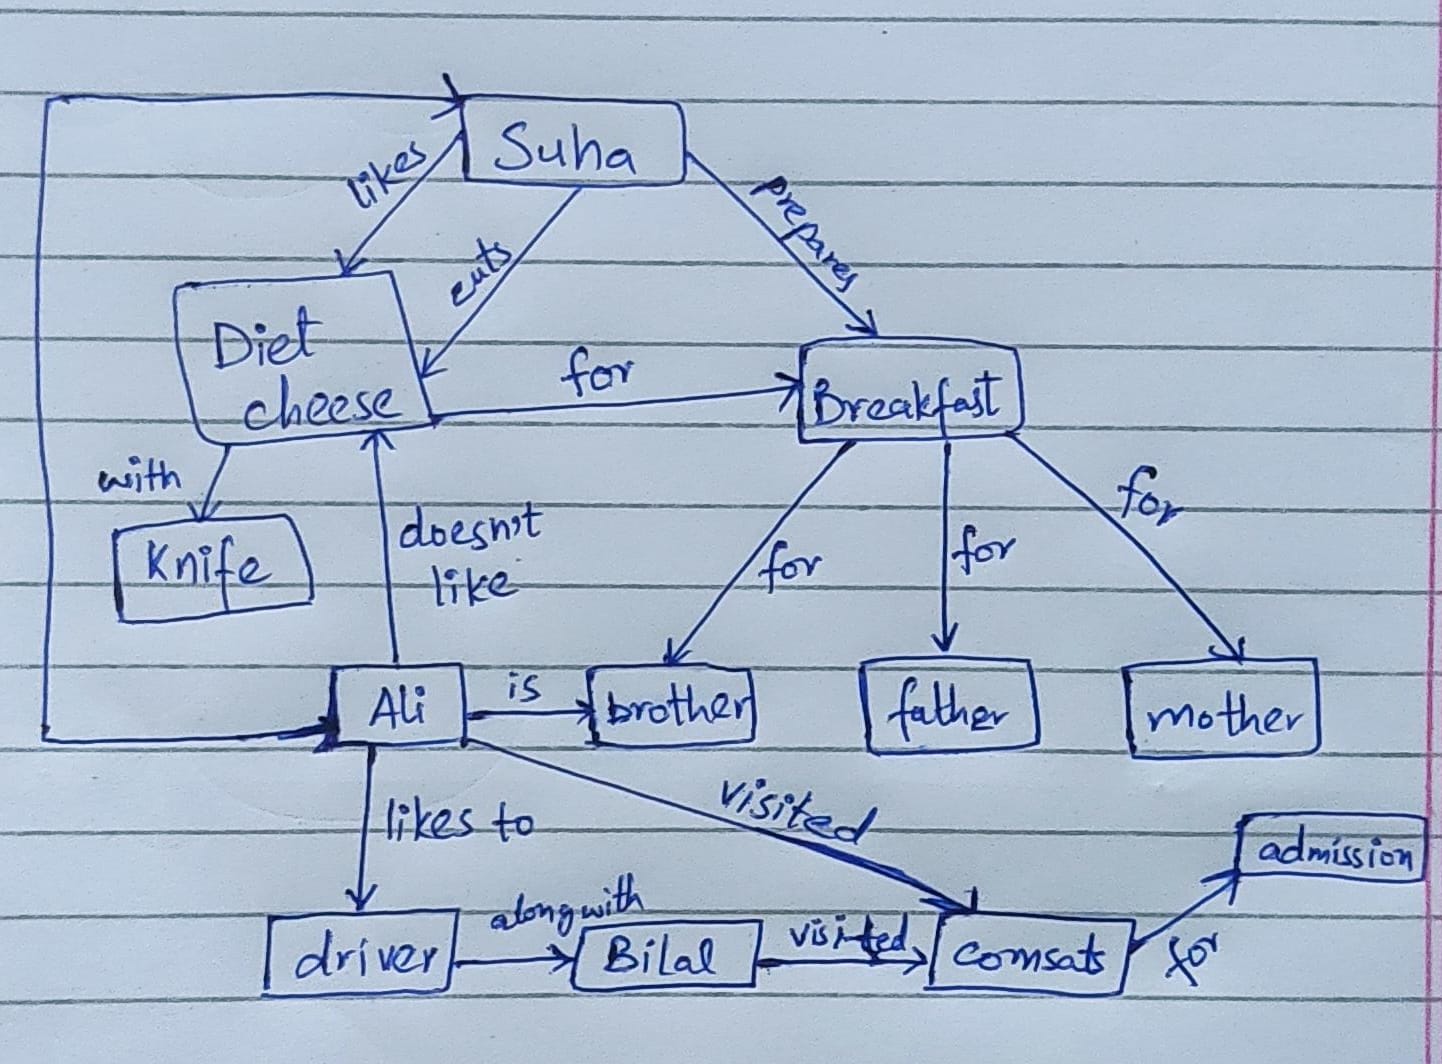 Suha
likes
cuts
prepares
Diet
cheese
for
Breakfast
with
Knife
doesn't
like
for
for
for
Ali
is
brother
father
mother
likes to
visited
admission
driver
along with
Bilal
visited
Comsats
for